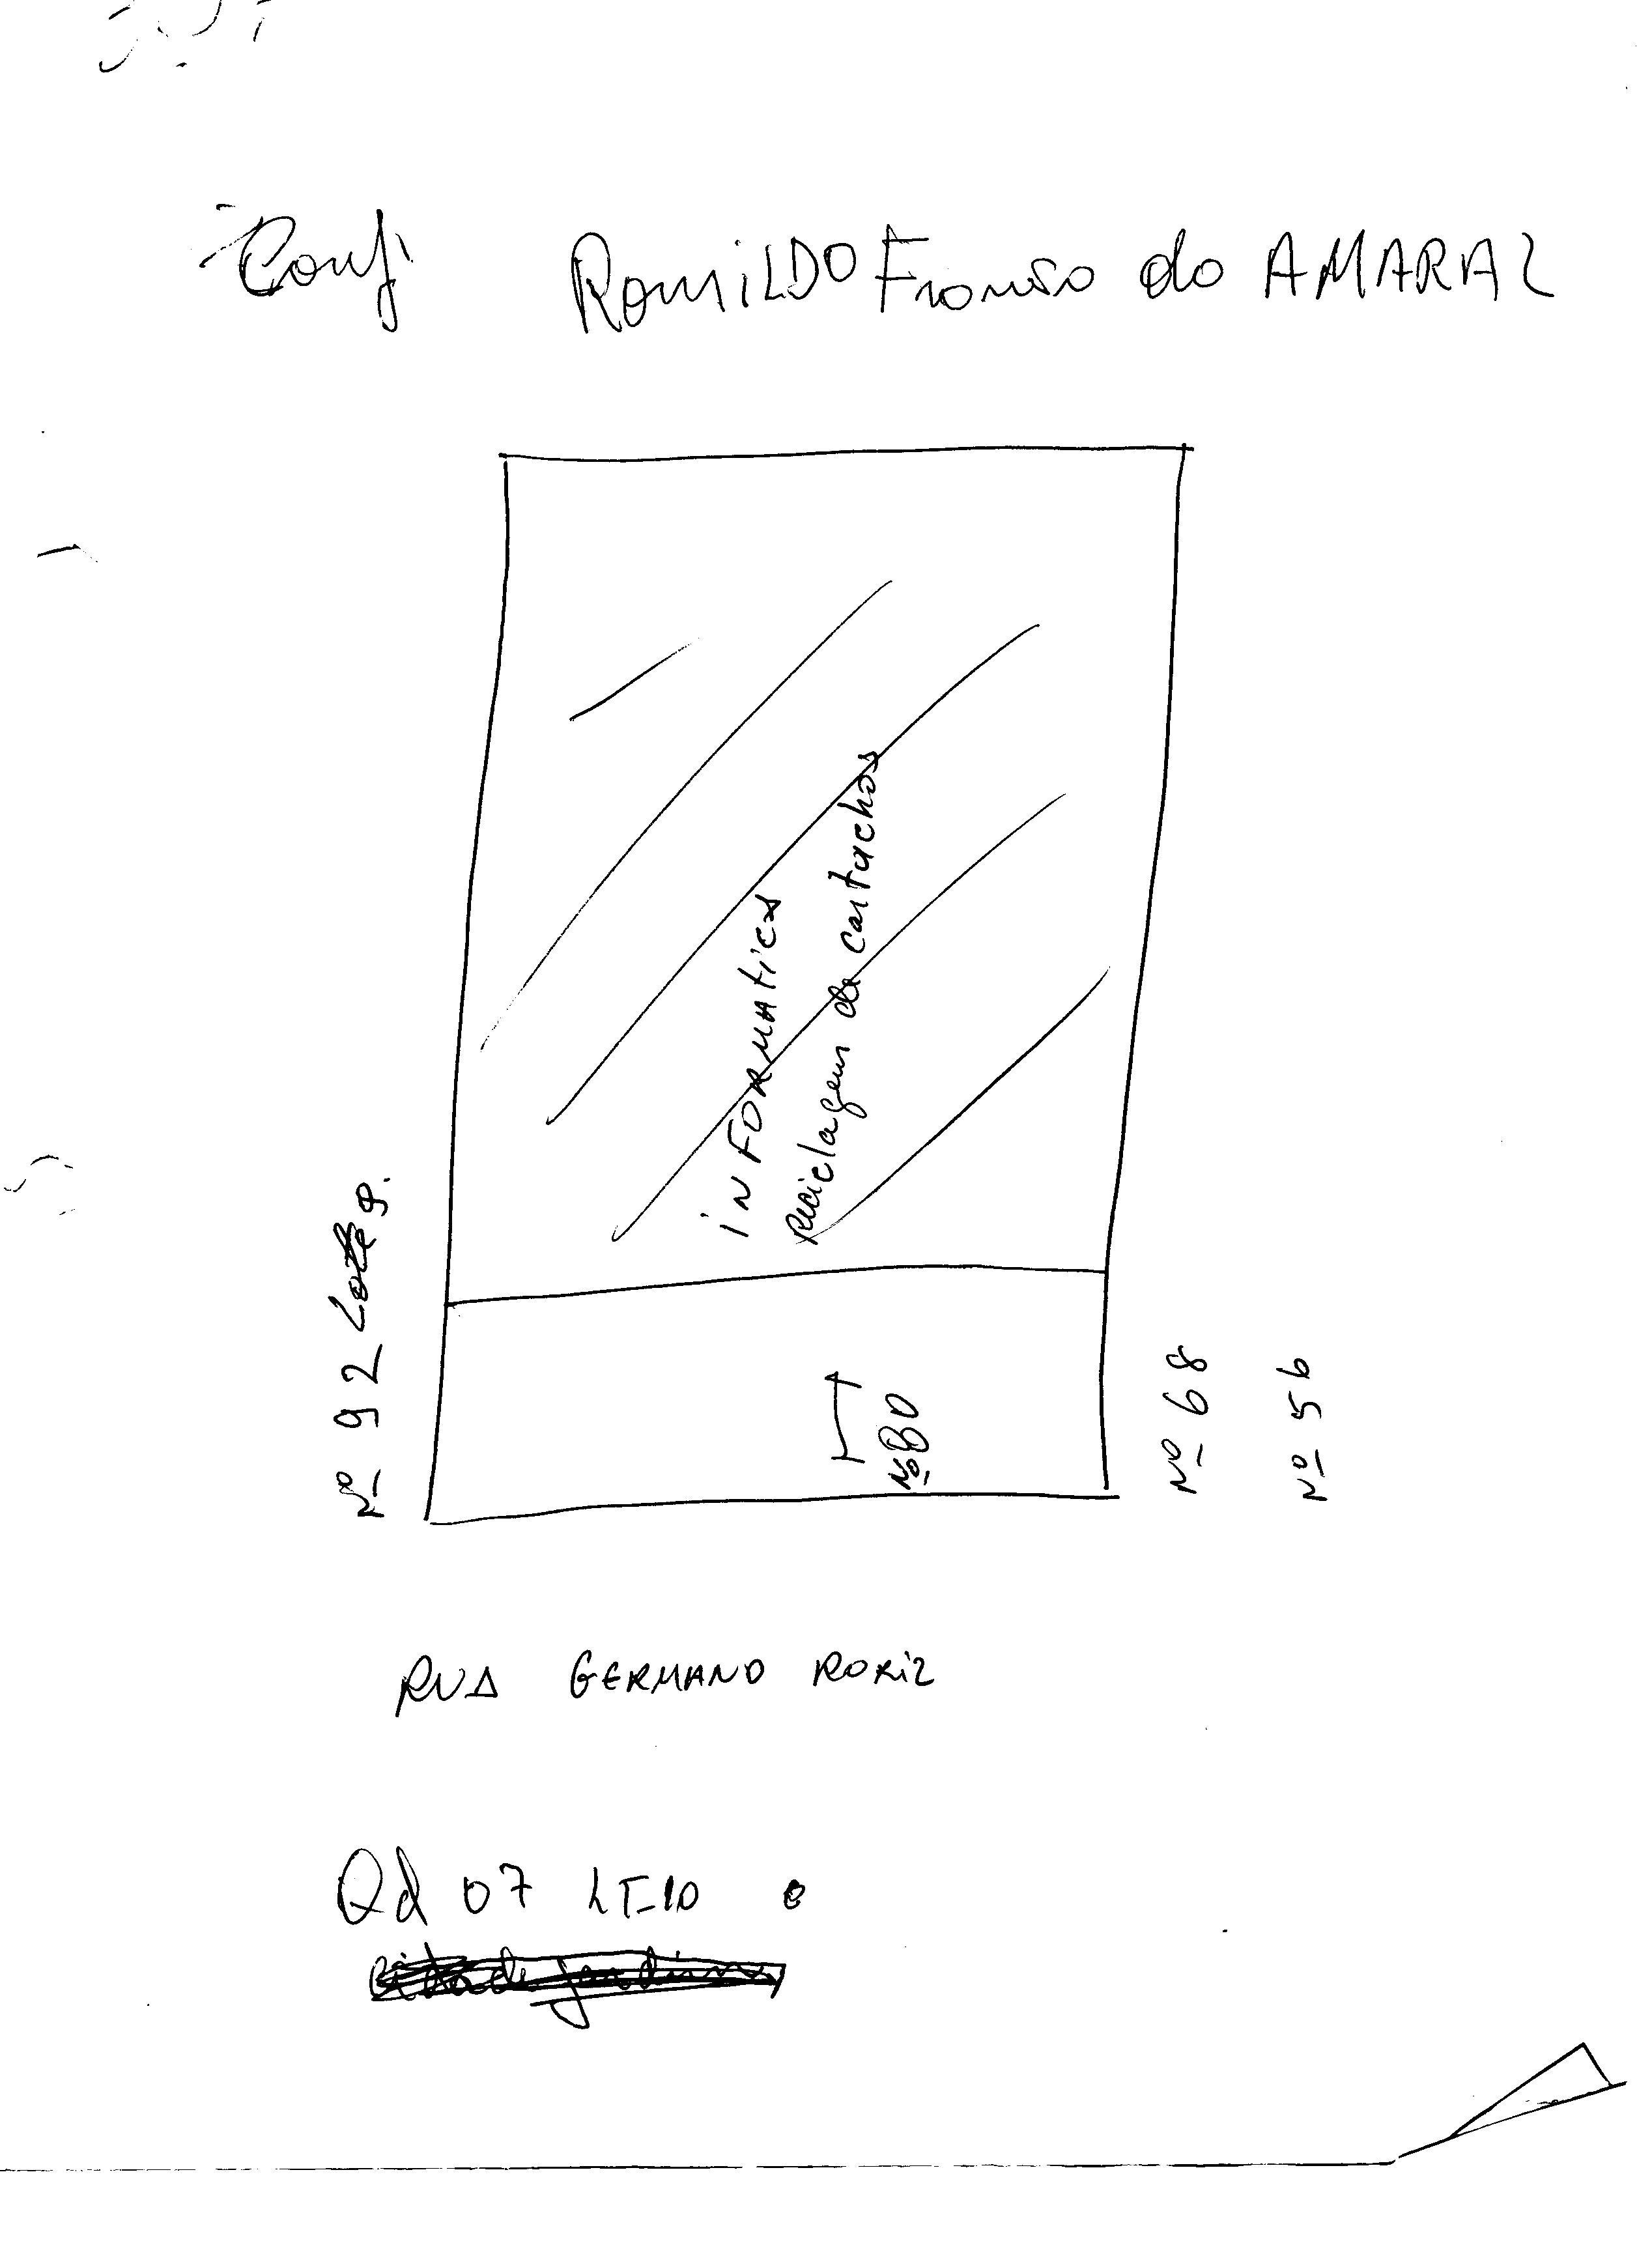 Conf. ROMILDO do AMARAL
INFORMATICA
reciclagem de cartuchos
Nº 92 Lote 9.
Nº 80
Nº 68
Nº 56
RUA GERMANO RORIZ
Qd 07 LT-10